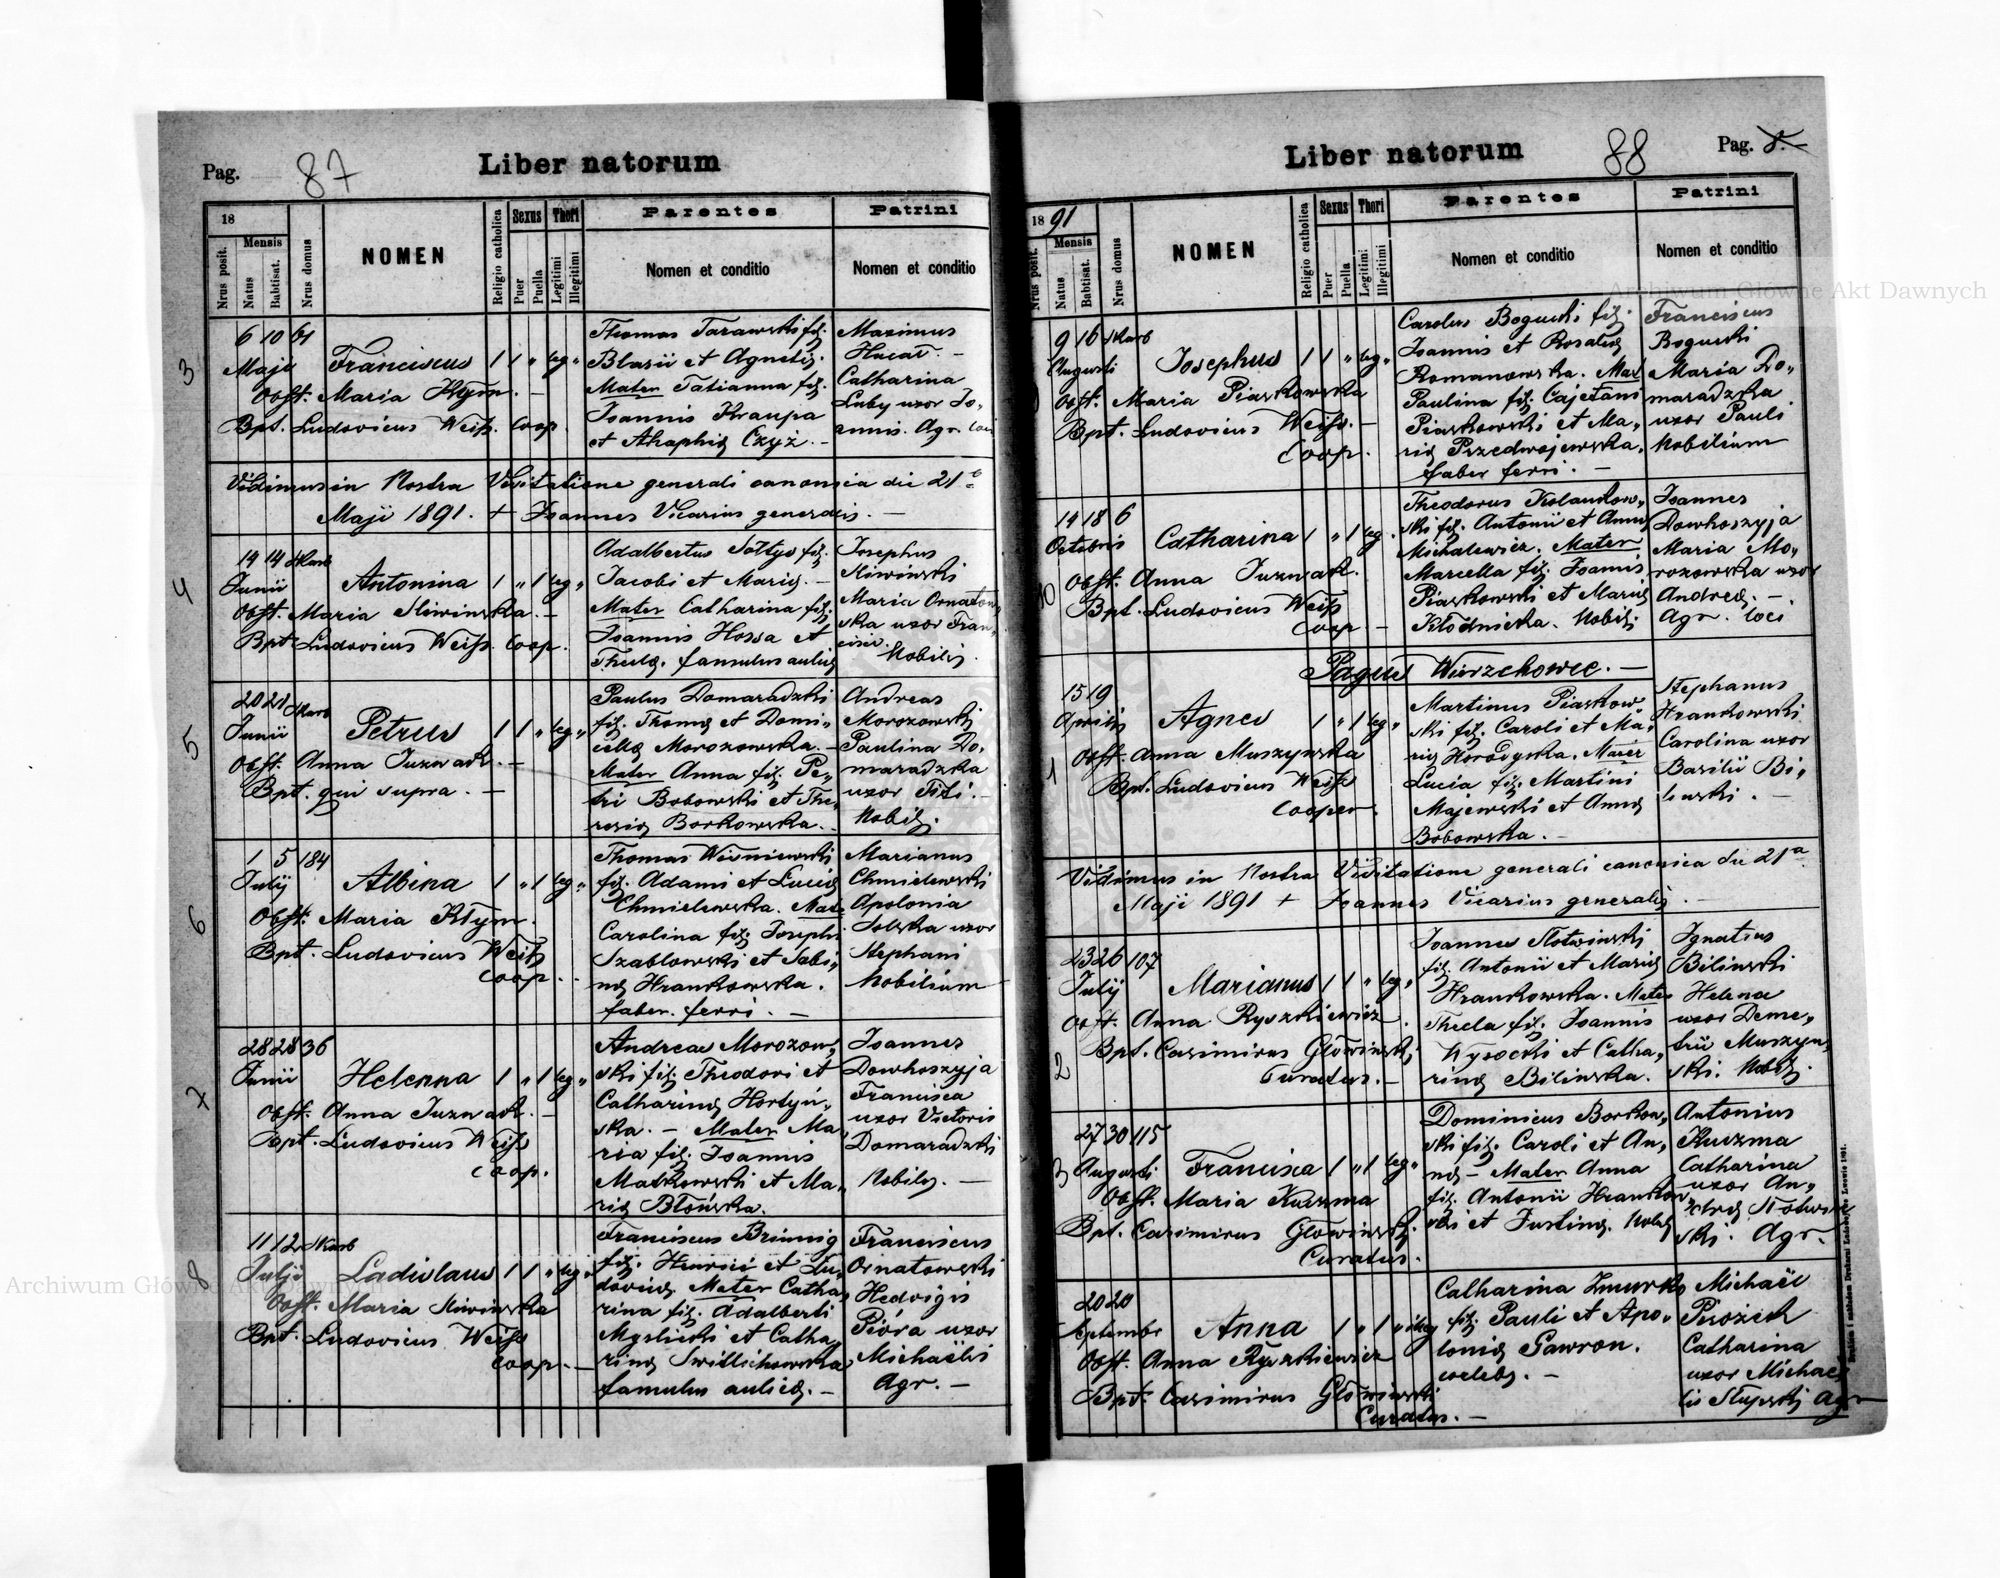 Pag. 87
Liber natorum
18
Nrus posit.
Mensis
Natus
Babtisat.
Nrus domus
NOMEN
Religio catholica
Sexus
Puer
Puella
Thori
Legitimi
Illegitimi
Parentes
Nomen et conditio
Patrini
Nomen et conditio
3
6 10 61
Maji Franciscus 1 1 " leg "
Obst. Maria Kłym. -
Bpt. Ludovicus Weiss. Coop.
Thomas Tarawski fil.
Blasii et Agnetis.
Mater Tatianna fil.
Joannis Kraupa
et Ahaphiæ Czyż. -
Maximus
Catharina
Luby uxor Jo-
annis. Agr. loci
Vidimus in Nostra Visitatione generali canonica die 21
Maji 1891. + Joannes Vicarius generalis. -
4
14 14 Skarb
Junii Antonina 1 " 1 leg "
Obst. Maria Śliwinska. -
Bpt. Ludovicus Weiss. Coop.
Adalbertus Sołtys fil.
Jacobi et Mariæ. -
Mater Catharina fil.
Joannis Hossa et
Theclæ. famulus aulicæ
Josephus
Śliwiński
Maria Ornatow
ska uxor Fran
cisci. Nobilis.
5
20 21 Skarb
Junii Petrus 1 1 " leg "
Obst. Anna Juzwak. -
Bpt. qui supra. -
Paulus Domaradzki
fil. Thomæ et Domi-
cellæ Morozowska. -
Mater Anna fil. Pe-
tri Bobowski et The-
resiæ Borkowska. -
Andreas
Morozowski
Paulina Do-
maradzka
uxor Titi. -
Nobil.
6
1 5 184
Julij Albina 1 " 1 leg "
Obst. Maria Kłym.
Bpt. Ludovicus Weiss
Coop. -
Thomas Wisniewski
fil. Adami et Luciæ
Chmielewska. Mat.
Carolina fil. Josephi
Szablowski et Sabi-
næ Hrankowska.
faber ferri. -
Marianus
Chmielewski
Apolonia
Solska uxor
Stephani
Nobilium
7
28 28 36
Junii Helenna 1 " 1 leg "
Obst. Anna Juzwak. -
Bpt. Ludovicus Weiss
Coop.
Andreas Morozow-
ski fil. Theodori et
Catharinæ Hortyń-
ska. - Mater Ma-
ria fil. Joannis
Matkowski et Ma-
riæ Błońska.
Joannes
Dowhoszyja
Francisca
uxor Victoris
Domaradzki
Nobiles. -
8
11 12 Skarb
Julji Ladislaus 1 1 " leg "
Obst. Maria Śliwińska
Bpt. Ludovicus Weiss
Coop. -
Franciscus Brinnig
fil. Henrici et Lu-
dovicæ Mater Catha-
rina fil. Adalberti
Mysliński et Catha-
rinæ Switlichowska
famulus aulicæ. -
Franciscus
Ornatowski
Hedvigis
Pióra uxor
Michaëlis
Agr. -
Liber natorum
88
Pag. 8.
18 91
Nrus posit.
Mensis
Natus
Babtisat.
Nrus domus
NOMEN
Religio catholica
Sexus
Puer
Puella
Thori
Legitimi
Illegitimi
Parentes
Nomen et conditio
Patrini
Nomen et conditio
9 16 Skarb
Augusti Josephus 1 1 " leg "
Obst. Maria Piaskowska
Bpt. Ludovicus Weiss. -
Coop.
Carolus Bogucki fil.
Joannis et Rosaliæ
Romanowska. Mat
Paulina fil. Cajetani
Piaskowski et Ma-
riæ Przedwojewska.
faber ferri. -
Franciscus
Bogucki
Maria Do-
maradzka
uxor Pauli
Nobilium
10
14 18 6
Octobris Catharina 1 " 1 leg.
Obst. Anna Juzwak.
Bpt. Ludovicus Weiss
Coop -
Theodorus Kolankow-
ski fil. Antonii et Annæ
Michalewicz. Mater
Marcella fil. Joannis
Piaskowski et Mariæ
Kłodnicka. Nobil.
Joannes
Dowhoszyja
Maria Mo-
rozowska uxor
Andreæ. -
Agr. loci
Pagus Wierzchowce. -
1
15 19
Aprilis Agnes 1 " 1 leg "
Obst. Anna Muszynska
Bpt. Ludovicus Weiss
Cooper.
Martinus Piaskow-
ski fil. Caroli et Ma-
riæ Horodyska. Mater
Lucia fil. Martini
Majewski et Annæ
Bobowska. -
Stephanus
Hrankowski
Carolina uxor
Basilii Bi-
linski. -
Vidimus in Nostra Visitatione generali canonica die 21a
Maji 1891 + Joannes Vicarius generalis. -
2
23 26 107
Julij Marianus 1 1 " leg "
Obst. Anna Ryszkiewicz.
Bpt. Casimirus Głowinski
Curatus. -
Joannes Słotwinski
fil. Antonii et Mariæ
Hrankowska. Mater
Thecla fil. Joannis
Wysocki et Catha-
rinæ Bilinska.
Ignatius
Bilinski
Helena
uxor Deme-
trii Muszyn-
ski. Nobil.
3
27 30 115
Augusti Francisca 1 " 1 leg "
Obst. Maria Kuczma
Bpt. Casimirus Głowinski.
Curatus.
Dominicus Borkow-
ski fil. Caroli et An-
næ - Mater Anna
fil. Antonii Hrankow
ski et Justinæ. Nobil.
Antonius
Kuczma
Catharina
uxor An-
dreæ Słotwin
ski. Agr.
20 20
Septembr Anna 1 " 1 " illeg
Obst. Anna Ryszkiewicz
Bpt. Casimirus Głowinski
Curatus. -
Catharina Żmurko
fil. Pauli et Apo-
loniæ Gawron.
celebs. -
Michaël
Pirożek
Catharina
uxor Michaë
lis Słupski Agr
Archiwum Główne Akt Dawnych
Archiwum Główne Akt Dawnych